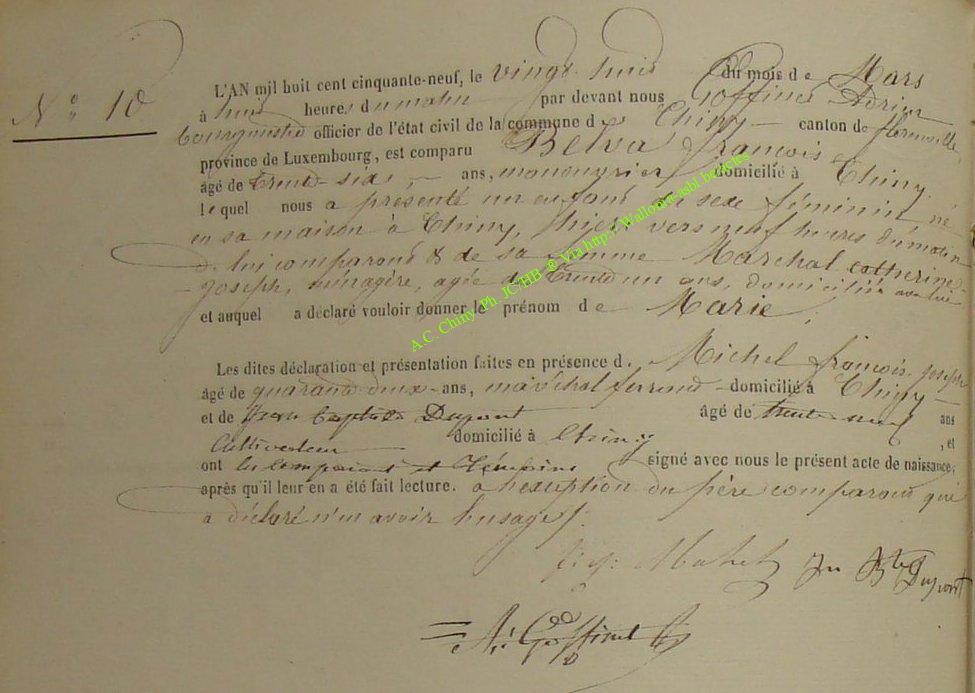 N° 10
L'AN mil huit cent cinquante-neuf, le vingt huit du mois de Mars
à huit heures du matin par devant nous Goffinet Adrien
bourgmestre officier de l'état civil de la commune de Chiny canton de florenville
province de Luxembourg, est comparu Belva françois
âgé de trente-six ans, manouvrier domicilié à Chiny
lequel nous a présenté un enfant de sexe féminin né
en sa maison à Chiny, hier vers neuf heures du matin
de lui comparant & de sa femme Marechal catherine
Joseph, ménagère, agée de trente un ans, domiciliée avec lui
et auquel a déclaré vouloir donner le prénom de Marie
Les dites déclaration et présentation faites en présence d. Michel françois joseph
âgé de quarante deux ans, maréchal ferrand domicilié à Chiny
et de Jean baptiste Dupont âgé de trente neuf ans
Cultivateur domicilié à Chiny , et
ont les comparant et témoins signé avec nous le présent acte de naissance,
après qu'il leur en a été fait lecture. a hexeption du père comparant qui
a déclaré n'en avoir husage /.
Jn Bte Dupont
A. Goffinet
A.C. Chiny Ph. JC/HB @ Via http:/ Wallonia-asbl.be/actes